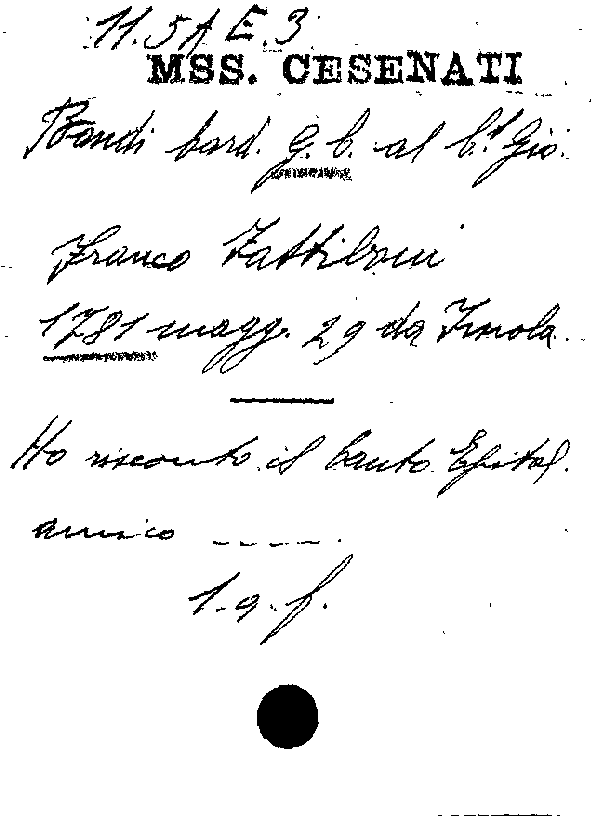 11.5A E.3
MSS. CESENATI
Bandi card. G. C. al C.te Gio.
Franco Fattiboni
1781 magg. 29 da Imola.
Ho riscontro il Canto Epital.
amico -----.
1. a. f.